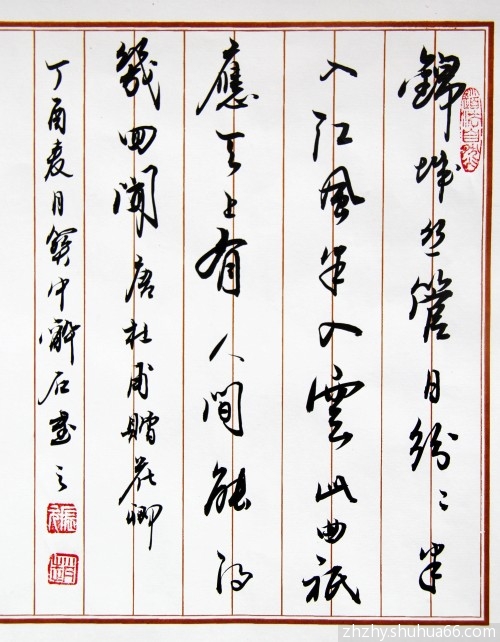 錦城丝管日紛々半
入江風半入雲此曲祇
應天上有人間能得
幾回聞 唐杜甫贈花卿
丁酉夏月中石書之
zhzhy.shuhua66.com